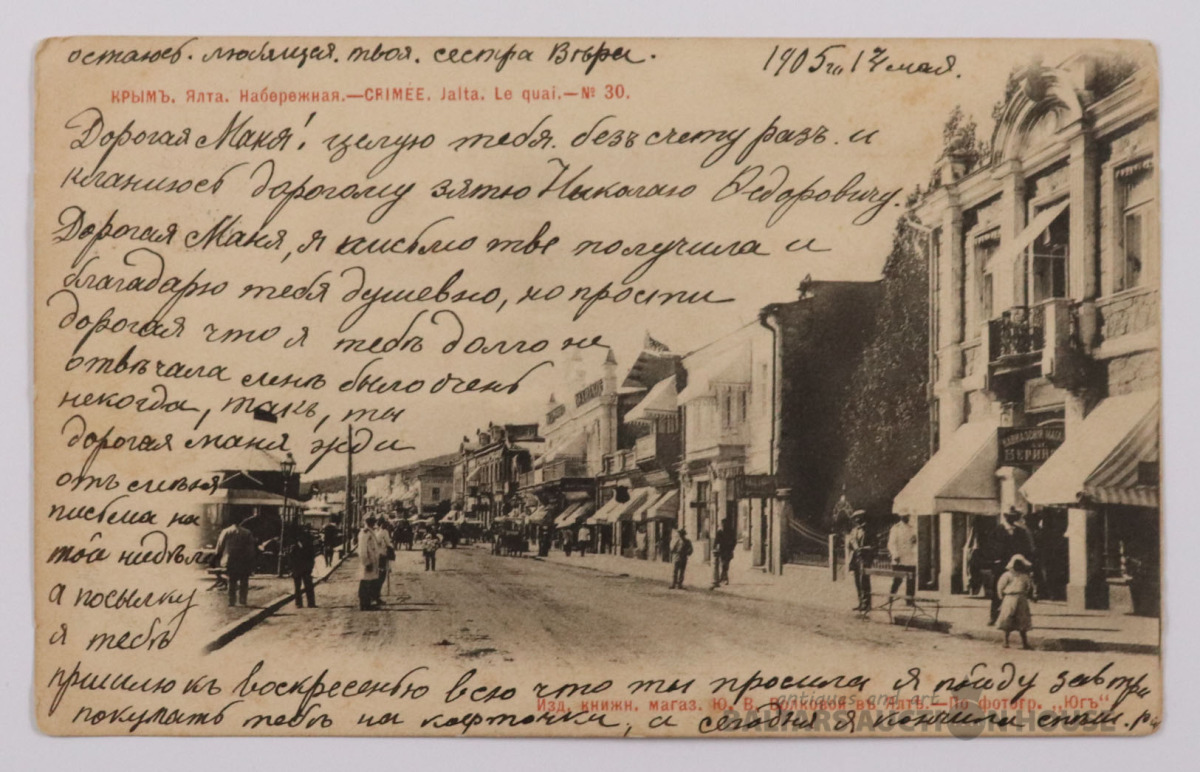 остаюсь. любящая. твоя. сестра Вѣра.
1905 г. 17 мая.
КРЫМЪ. Ялта. Набережная.—CRIMÉE. Jalta. Le quai.—№ 30.
Дорогая Маня! целую тебя. безъ счету разъ. и
кланиюсь дорогому зятю Николаю Федоровичу.
Дорогая Маня, я письмо твое получила и
благадарю тебя душевно, но прости
дорогая что я тебѣ долго не
отвѣчала мнѣ было очень
некогда, такъ, ты
дорогая маня жди
отъ меня
письма на
той недѣли
а посылку
я тебѣ
пришлю къ воскресенью всю что ты просила я пойду завтра
покупать тебѣ на кофточки, а сегодня я кончила
Изд. книжн. магаз. Ю. В. Волковой въ Ялтѣ.—По фотогр. „Югъ“
antiques and art
GALLARS AUCTION HOUSE